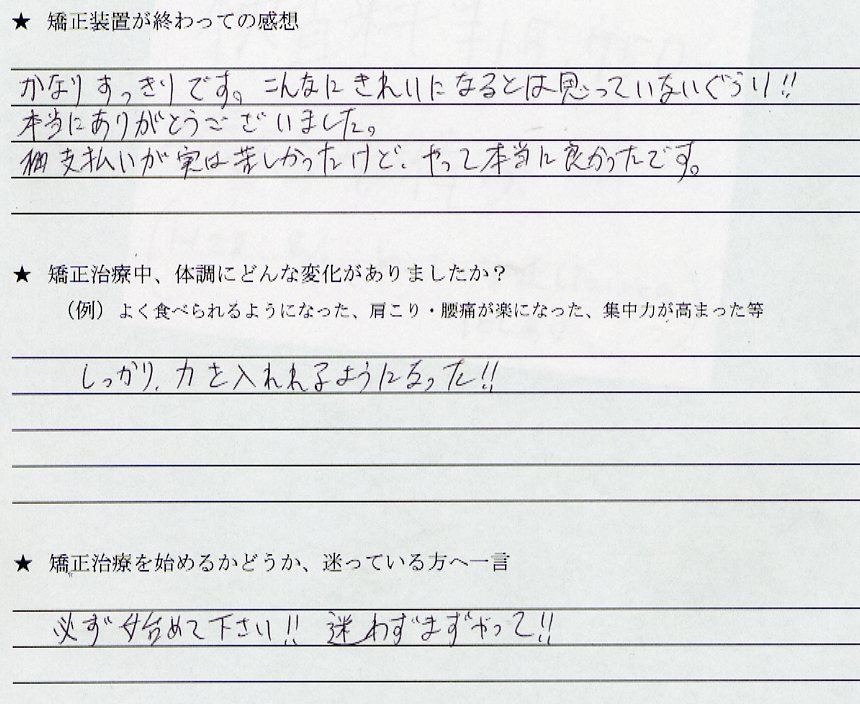 ★ 矯正装置が終わっての感想
かなりすっきりです。こんなにきれいになるとは思っていないぐらい!!
本当にありがとうございました。
支払いが実は苦しかったけど、やって本当に良かったです。
★ 矯正治療中、体調にどんな変化がありましたか？
（例）よく食べられるようになった、肩こり・腰痛が楽になった、集中力が高まった等
しっかり、力を入れれるようになった!!
★ 矯正治療を始めるかどうか、迷っている方へ一言
必ず始めて下さい!! 迷わずまずやって!!